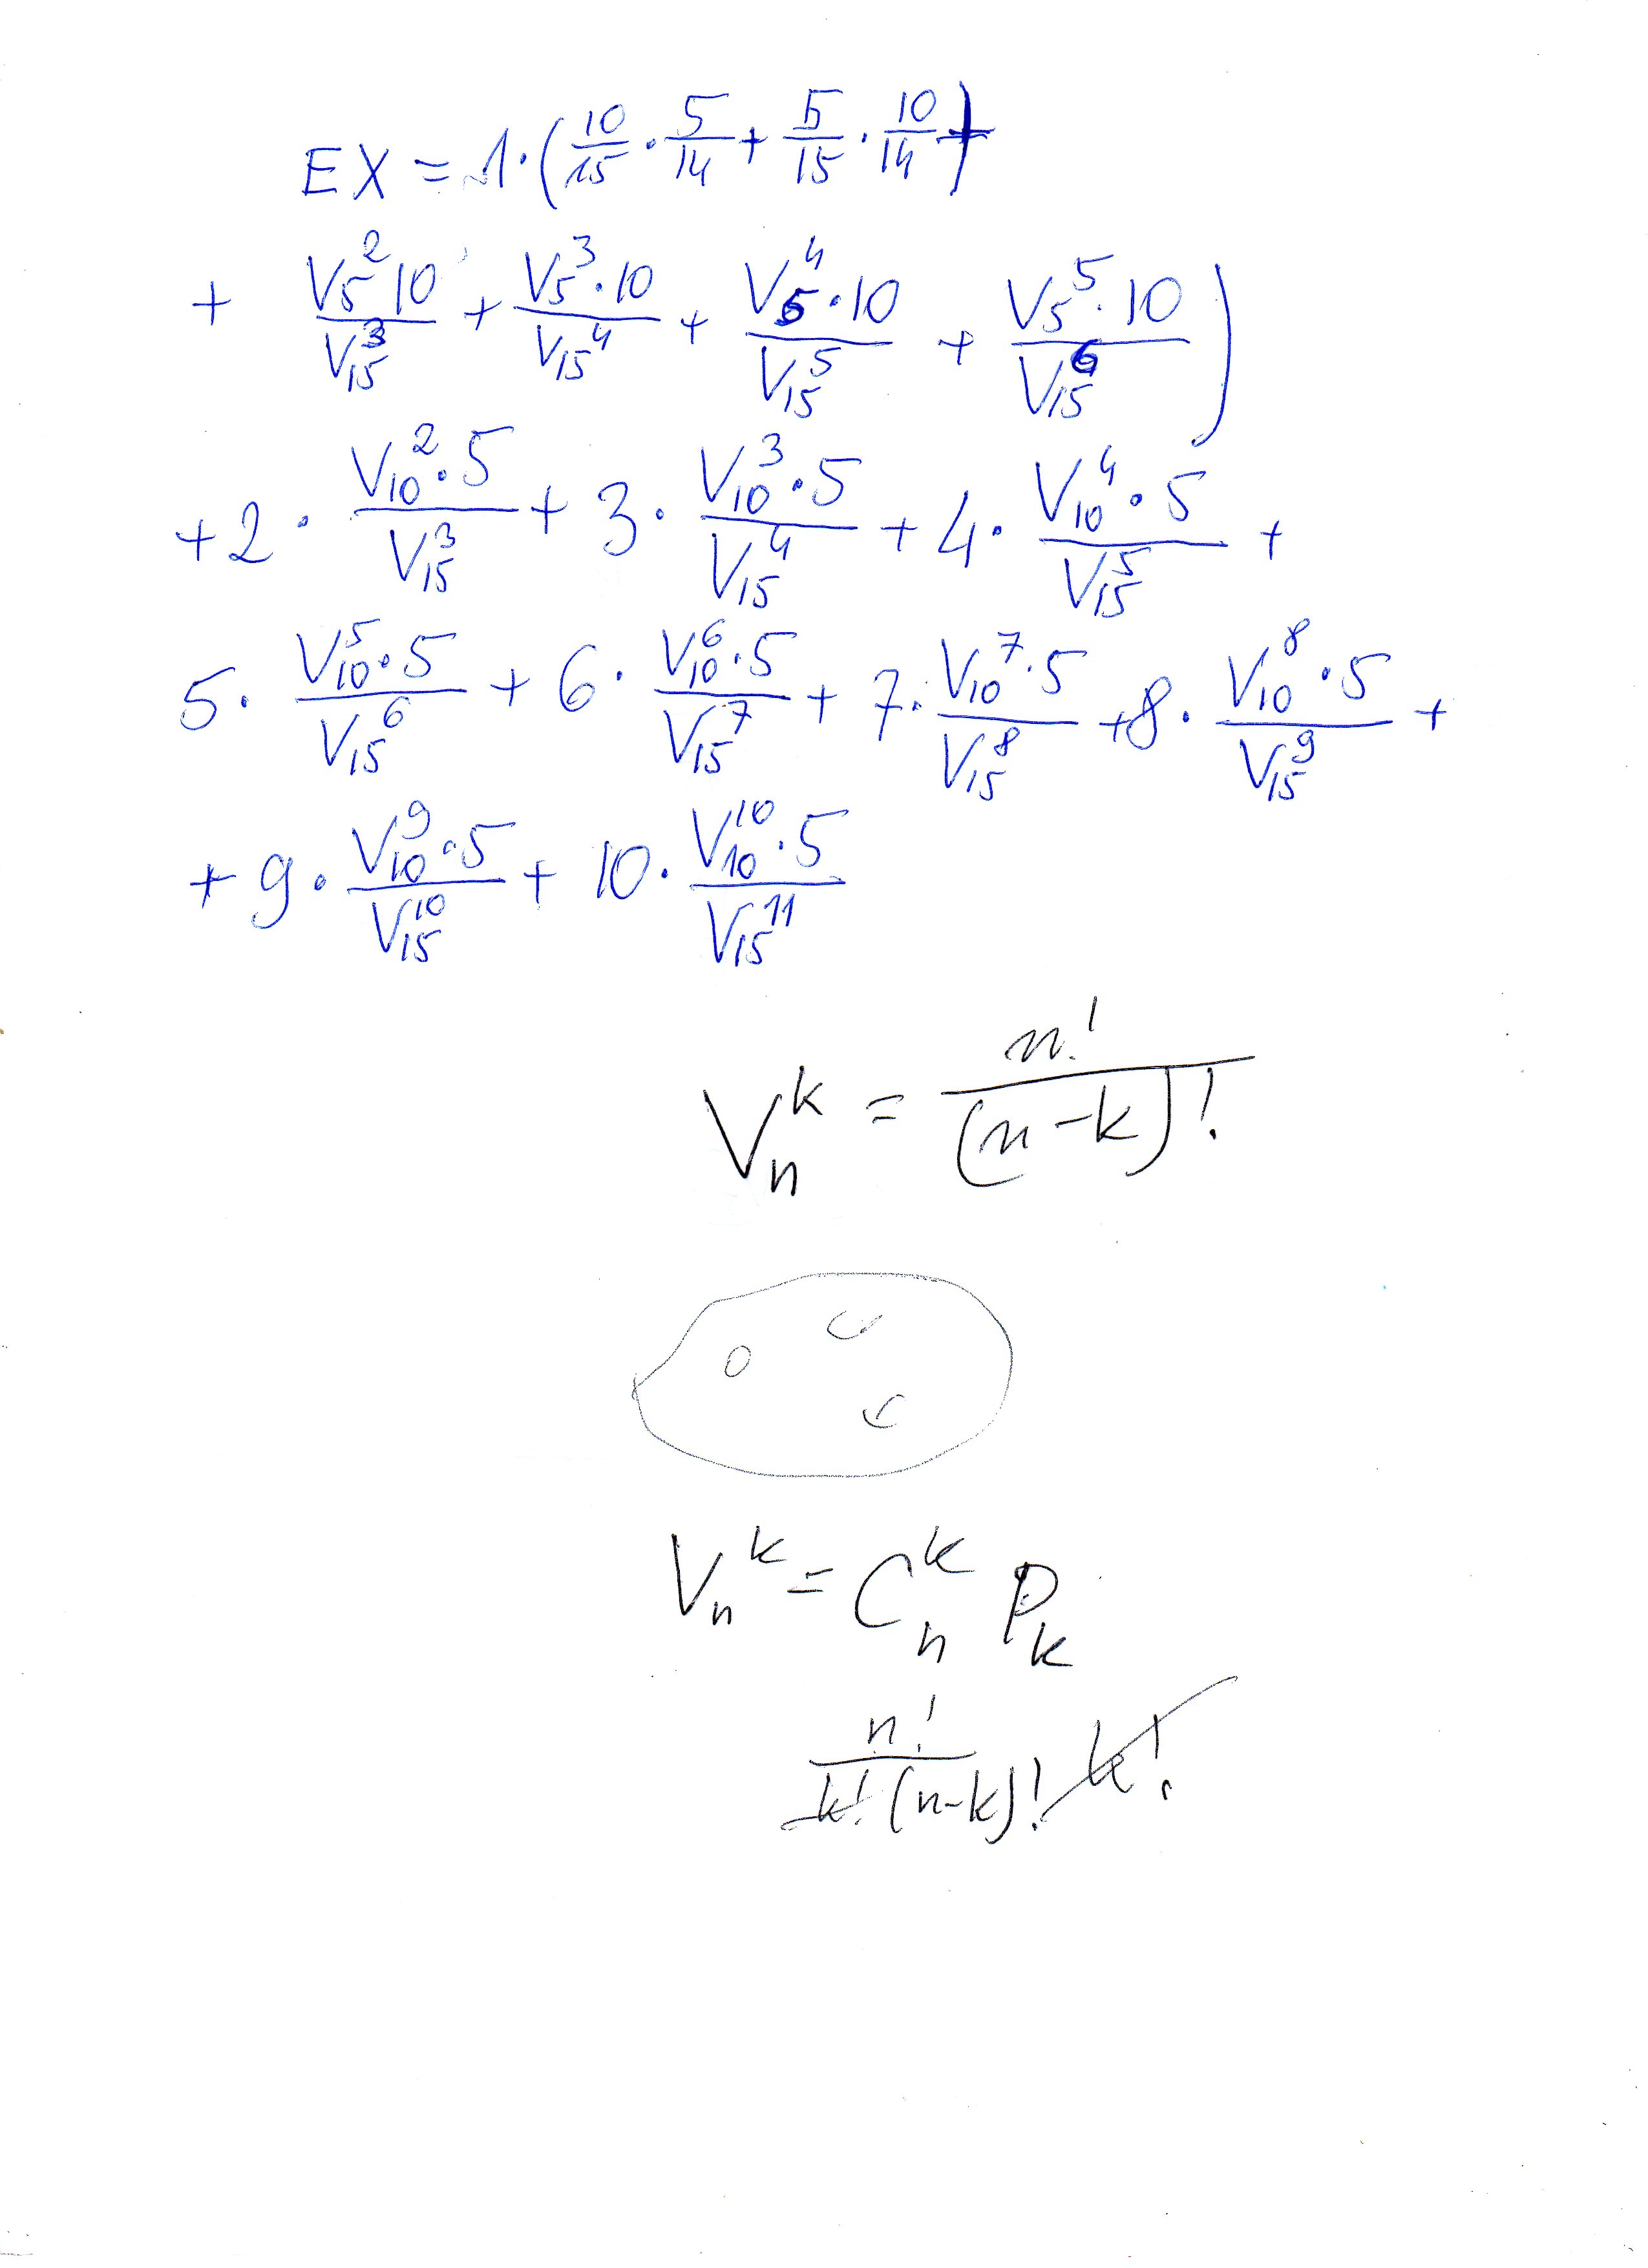 EX = 1·(10/15 · 5/14 + 5/15 · 10/14 +
+ V₅² 10 / V₁₅³ + V₅³·10 / V₁₅⁴ + V₅⁴·10 / V₁₅⁵ + V₅⁵·10 / V₁₅⁶)
+2 · V₁₀²·5 / V₁₅³ + 3 · V₁₀³·5 / V₁₅⁴ + 4 · V₁₀⁴·5 / V₁₅⁵ +
5 · V₁₀⁵·5 / V₁₅⁶ + 6 · V₁₀⁶·5 / V₁₅⁷ + 7 · V₁₀⁷·5 / V₁₅⁸ + 8 · V₁₀⁸·5 / V₁₅⁹ +
+ 9 · V₁₀⁹·5 / V₁₅¹⁰ + 10 · V₁₀¹⁰·5 / V₁₅¹¹
Vₙᵏ = n! / (n-k)!
Vₙᵏ = Cₙᵏ Pₖ
n! / k!(n-k)! k!